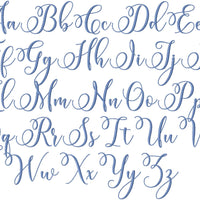 Aa Bb Cc Dd Ee
Ff Gg Hh Ii Jj
Ll Mm Nn Oo Pp
Qq Rr Ss Tt Uu
Ww Xx Yy Zz